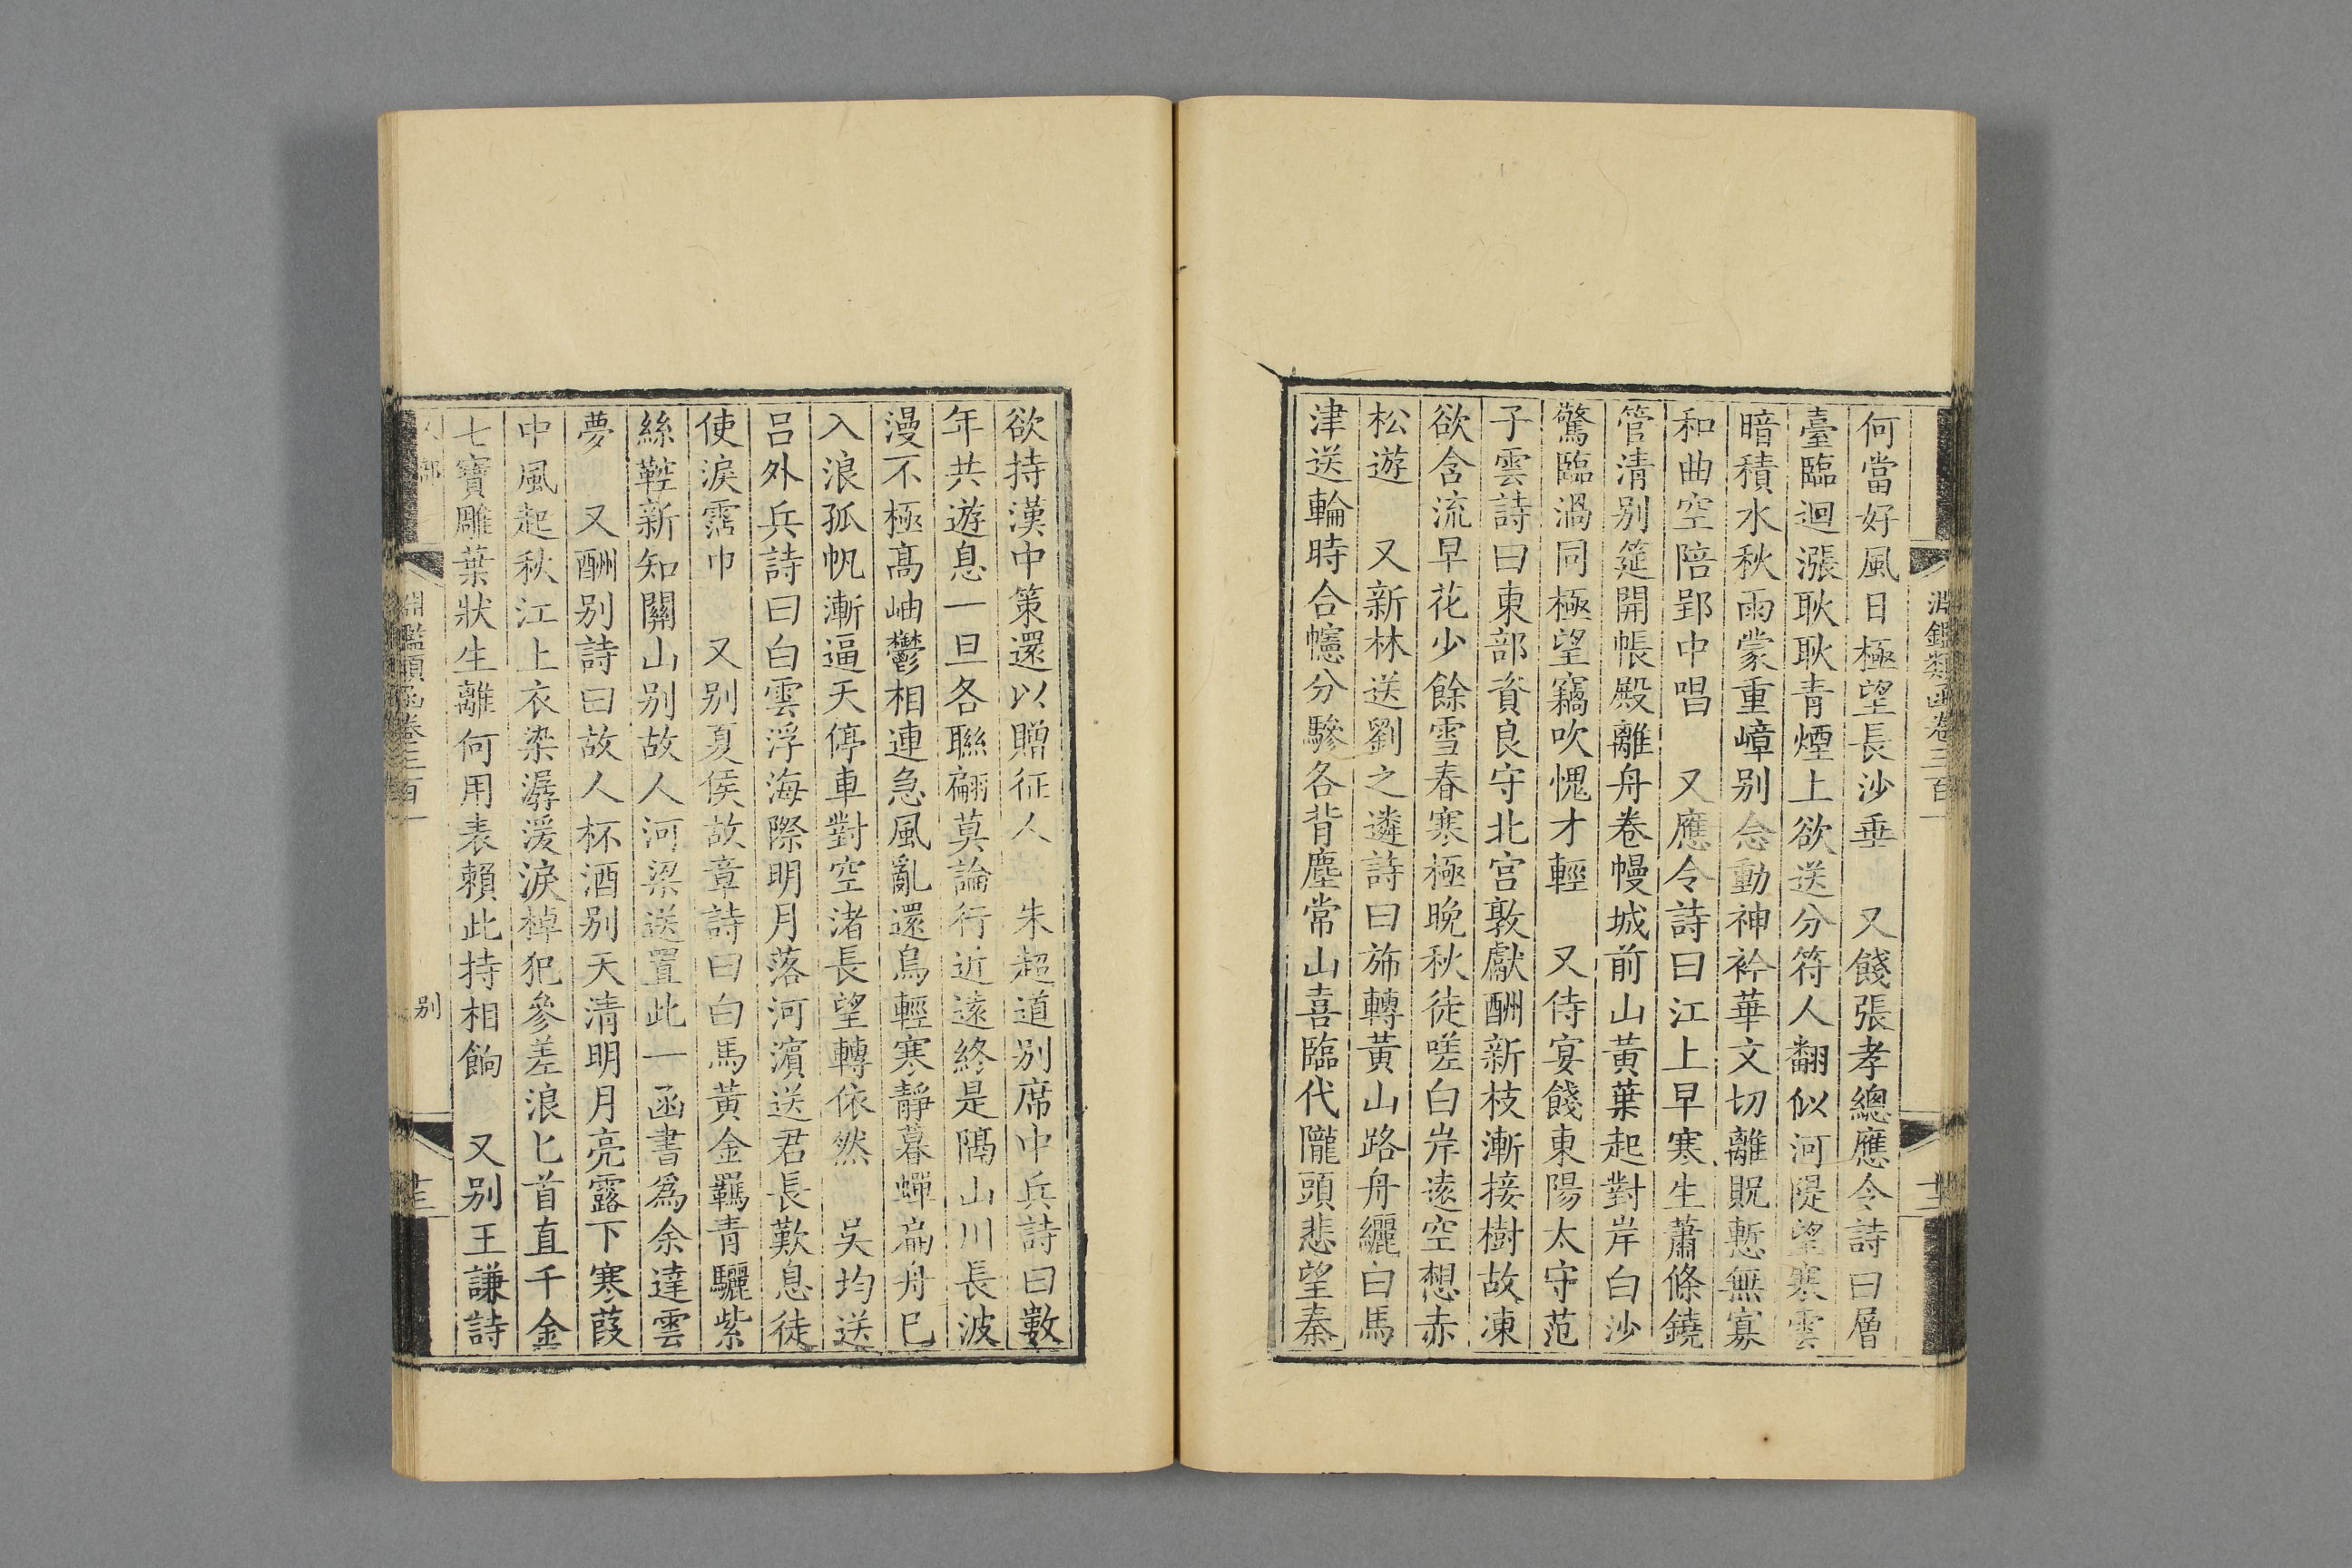 淵鑑類函卷三百一
何當好風日極望長沙垂　又餞張孝總應令詩曰層
臺臨迥漲耿耿青煙上欲送分符人翻似河隄望寒雲
暗積水秋雨蒙重嶂别念動神衿華文切離貺慙無寡
和曲空陪郢中唱　又應令詩曰江上早寒生蕭條鐃
管清别筵開帳殿離舟卷幔城前山黃葉起對岸白沙
驚臨渦同極望竊吹愧才輕　又侍宴餞東陽太守范
子雲詩曰東部資良守北宫敦獻酬新枝漸接樹故凍
欲含流早花少餘雪春寒極晚秋徒嗟白岸遠空想赤
松遊　又新林送劉之遴詩曰斾轉黃山路舟纚白馬
津送輪時合幰分驂各背塵常山喜臨代隴頭悲望秦
欲持漢中策還以贈征人　朱超道别席中兵詩曰數
年共遊息一旦各聯翩莫論行近遠終是隔山川長波
漫不極高岫鬱相連急風亂還鳥輕寒靜暮蟬扁舟已
入浪孤帆漸逼天停車對空渚長望轉依然　吳均送
吕外兵詩曰白雲浮海際明月落河濵送君長歎息徒
使淚霑巾　又别夏侯故章詩曰白馬黃金羈青驪紫
絲鞚新知關山别故人河梁送置此一函書為余達雲
夢　又酬别詩曰故人杯酒别天清明月亮露下寒葭
中風起秋江上衣染潺湲淚棹犯參差浪匕首直千金
七寶雕葉狀生離何用表賴此持相餉　又别王謙詩
人部
淵鑑類函卷三百一
别